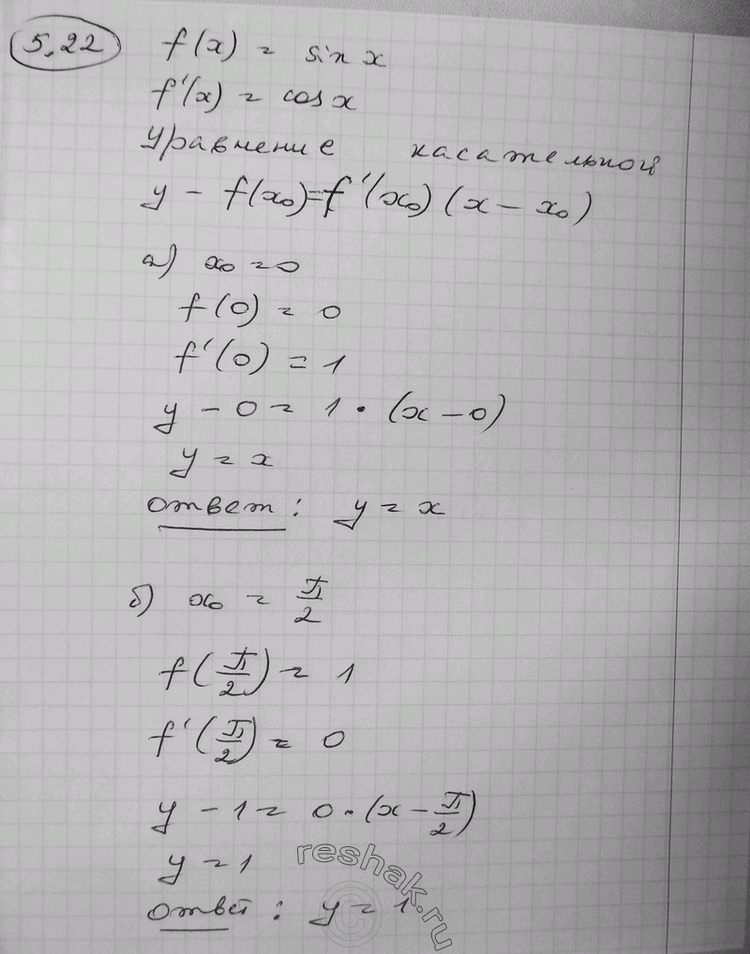 5.22 f(x) = sin x
f'(x) = cos x
Уравнение касательной
y - f(x₀) = f'(x₀) (x - x₀)
а) x₀ = 0
f(0) = 0
f'(0) = 1
y - 0 = 1 · (x - 0)
y = x
Ответ: y = x
б) x₀ = π/2
f(π/2) = 1
f'(π/2) = 0
y - 1 = 0 · (x - π/2)
y = 1
Ответ: y = 1
reshak.ru